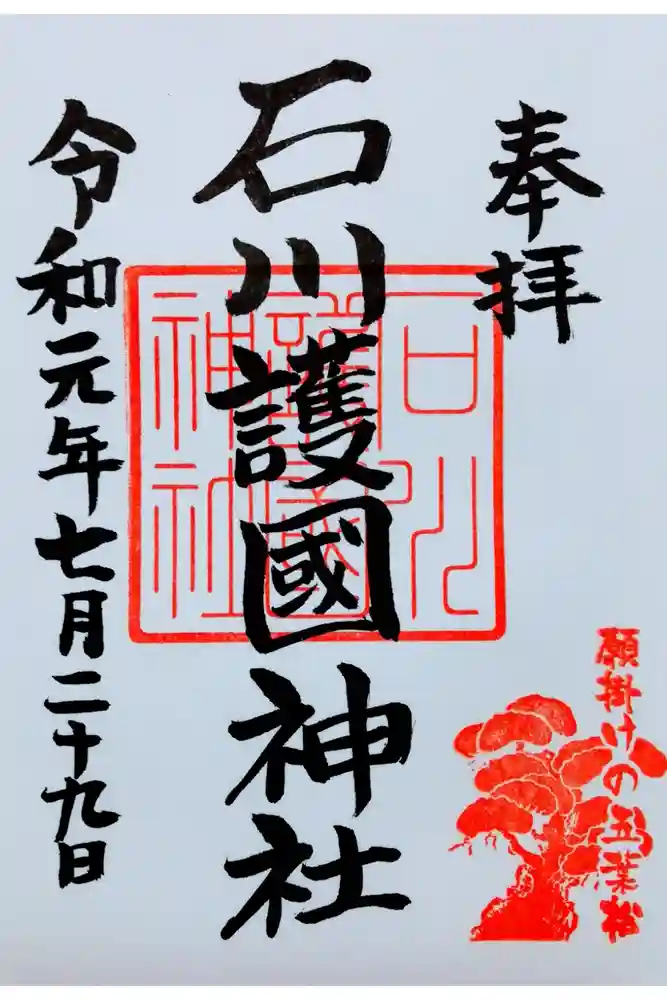 奉拝
石川護國神社
令和元年七月二十九日
石川
護國
神社
願掛けの五葉松